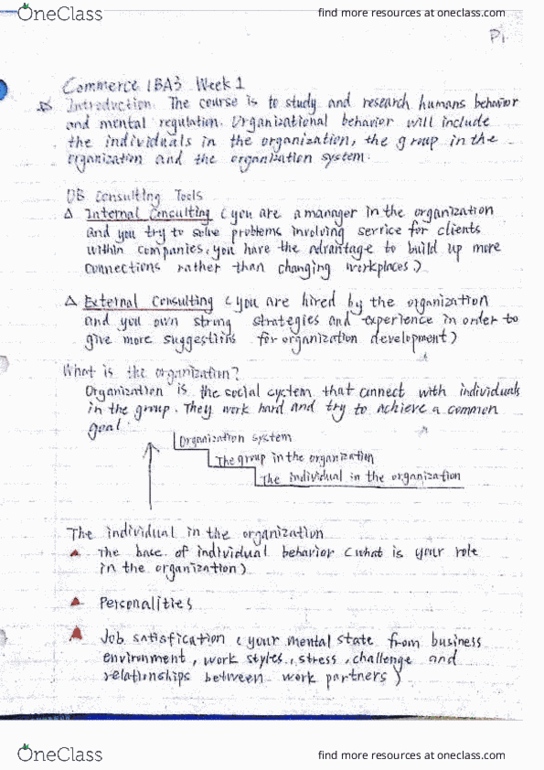 OneClass
find more resources at oneclass.com
P1
Commerce 1BA3 Week 1
Introduction. The course is to study and research humans behavior
and mental regulation. Organizational behavior will include
the individuals in the organization, the group in the
organization and the organization system.
OB Consulting Tools
Δ Internal Consulting (you are a manager in the organization
and you try to solve problems involving service for clients
within companies, you have the advantage to build up more
connections rather than changing workplaces)
Δ External Consulting (you are hired by the organization
and you own strong strategies and experience in order to
give more suggestions for organization development)
What is the organization?
Organization is the social system that connect with individuals
in the group. They work hard and try to achieve a common
goal.
Organization system
The group in the organization
The individual in the organization
The individual in the organization
▲ The base of individual behavior (what is your role
in the organization)
▲ Personalities
▲ Job satisfication (your mental state from business
environment, work styles, stress, challenge and
relationships between work partners)
OneClass
find more resources at oneclass.com